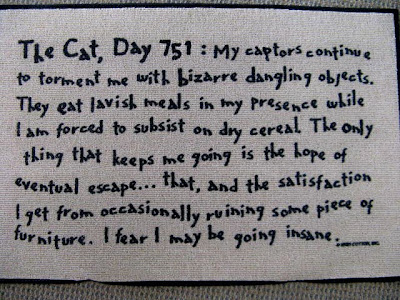 The Cat, Day 751 : My captors continue
to torment me with bizarre dangling objects.
They eat lavish meals in my presence while
I am forced to subsist on dry cereal. The only
thing that keeps me going is the hope of
eventual escape... that, and the satisfaction
I get from occasionally ruining some piece of
furniture. I fear I may be going insane.